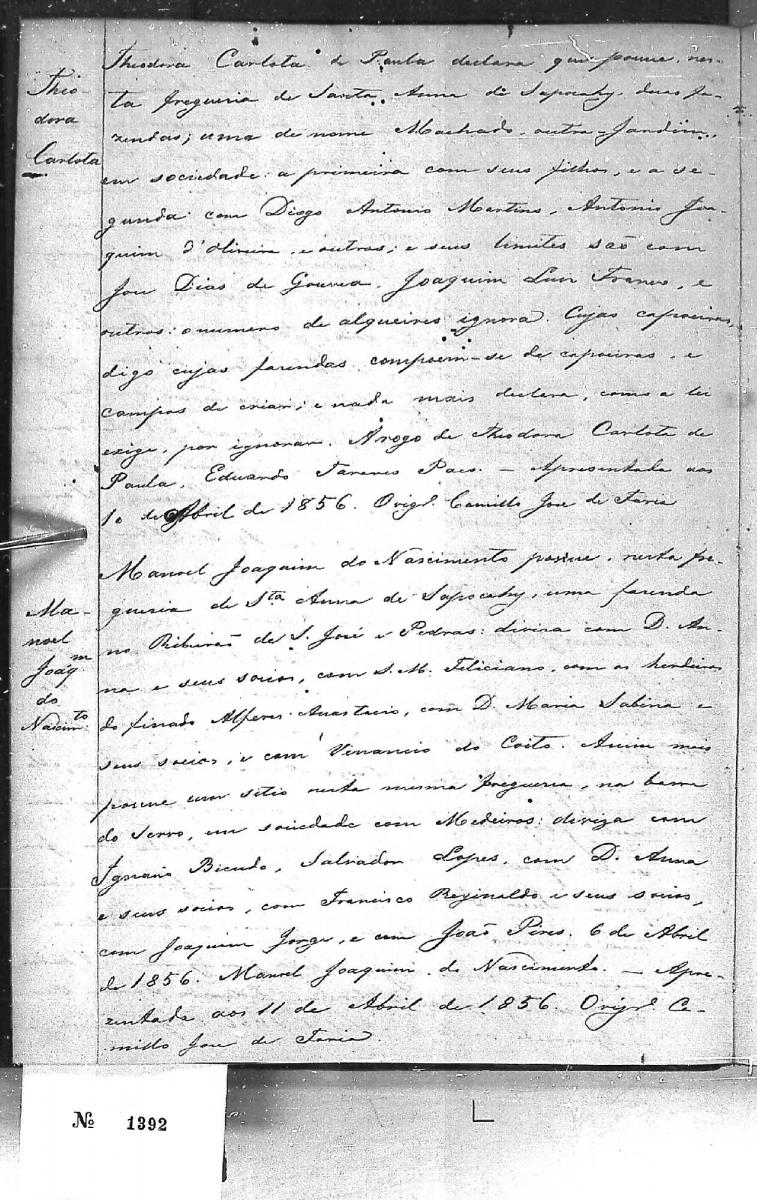 Theo-
dora
Carlota
Theodora Carlota de Paula declara que possue, nes-
ta freguesia de Santa Anna de Sapocahy, duas fa-
zendas; uma de nome Machado, outra - Jardim,
em sociedade: a primeira com seus filhos, e a se-
gunda com Diogo Antonio Martins, Antonio Joa-
quim d'Oliveira, e outros; e seus limites são com
Jose Dias de Gouvea, Joaquim Luis Franco, e
outros: o numero de alqueires ignora. Cujas capoeiras,
digo cujas fazendas compoem-se de capoeiras, e
campos de criar; e nada mais declara, como a lei
exige, por ignorar. A rogo de Theodora Carlota de
Paula, Eduardo Tavares Paes. - Apresentada aos
10 de Abril de 1856. Origl. Camillo Jose de Faria
Ma-
noel
Joaqm
do
Nascimto
Manoel Joaquim do Nascimento possue, nesta fre-
guesia de Sta Anna de Sapocahy, uma fazenda
no Ribeirão de S. José e Pedras: divisa com D. An-
na e seus socios, com S. M. Feliciano, com os herdeiros
do finado Alferes Anastacio, com D. Maria Sabina e
seus socios, e com Venancio do Coito. Assim mais
possue um sitio nesta mesma freguesia, na barra
do Serro, em sociedade com Medeiros: diviza com
Ignacio Bicudo, Salvador Lopes, com D. Anna
e seus socios, com Francisco Reginaldo e seus socios,
com Joaquim Jorge, e com João Pires. 6 de Abril
de 1856. Manoel Joaquim do Nascimento. - Apre-
zentada aos 11 de Abril de 1856. Origl. Ca-
millo Jose de Faria.
№ 1392